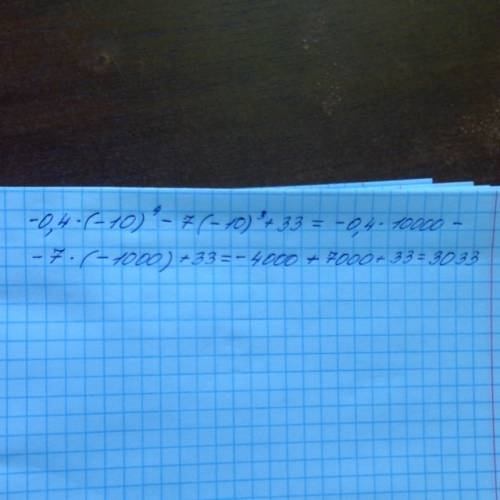 -0,4·(-10)⁴-7(-10)³+33=-0,4·10000-
-7·(-1000)+33=-4000+7000+33=3033